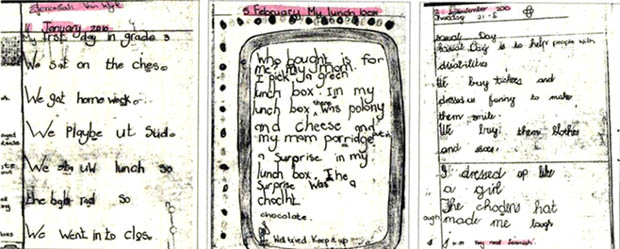 Jeremiah Van Wyk
January 2016
My first day in grade 3
We sat on the ches.
We got home week.
We Playbe ut Sud.
We uw lunch so
the rod so
We went in to clos.
5 February My lunch box
Who bought is for
me my mom.
I pick a green
lunch box In my
lunch box there was polony
and cheese and
my mom porridge
a surprise in my
lunch box. The
Surprise was a
choclht
chocolate.
Well tried. Keep it up
September 2015
Casual Day is to help people with
disabilities
We buy tickets and
dressed us fanny to make
them smile
We buy them Clothes
and shoes.
I dressed up like
a girl
The chodens hat
made me laugh
laugh